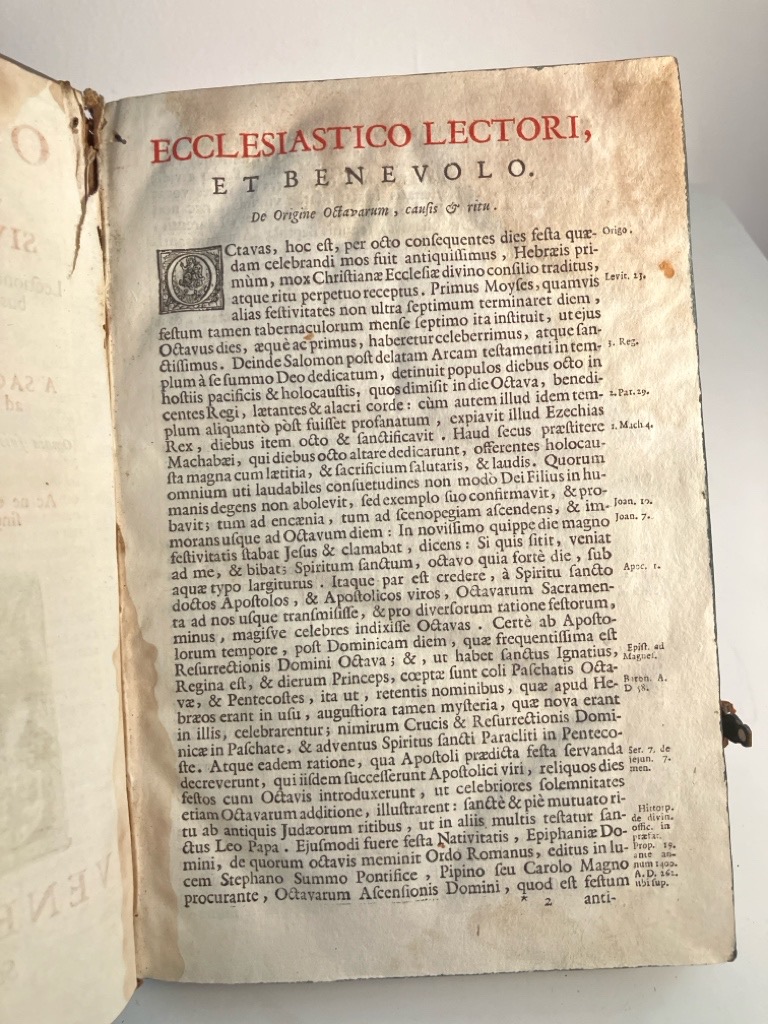 ECCLESIASTICO LECTORI,
ET BENEVOLO.
De Origine Octavarum, causis & ritu.
OCtavas, hoc est, per octo consequentes dies festa quæ- Origo.
dam celebrandi mos fuit antiquissimus, Hebræis pri-
mùm, mox Christianæ Ecclesiæ divino consilio traditus,
atque ritu perpetuo receptus. Primus Moyses, quamvis Levit. 23.
alias festivitates non ultra septimum terminaret diem,
festum tamen tabernaculorum mense septimo ita instituit, ut ejus
Octavus dies, æquè ac primus, haberetur celeberrimus, atque san-
ctissimus. Deinde Salomon post delatam Arcam testamenti in tem- 3. Reg.
plum à se summo Deo dedicatum, detinuit populos diebus octo in
hostiis pacificis & holocaustis, quos dimisit in die Octava, benedi-
centes Regi, lætantes & alacri corde: cùm autem illud idem tem- 2. Par. 29.
plum aliquantò pòst fuisset profanatum, expiavit illud Ezechias
Rex, diebus item octo & sanctificavit. Haud secus præstitere 1. Mach 4.
Machabæi, qui diebus octo altare dedicarunt, offerentes holocau-
sta magna cum lætitia, & sacrificium salutaris, & laudis. Quorum
omnium uti laudabiles consuetudines non modò Dei Filius in hu-
manis degens non abolevit, sed exemplo suo confirmavit, & pro-
bavit; tum ad encænia, tum ad scenopegiam ascendens, & im- Joan. 10.
morans usque ad Octavum diem: In novissimo quippe die magno Joan. 7.
festivitatis stabat Jesus & clamabat, dicens: Si quis sitit, veniat
ad me, & bibat; Spiritum sanctum, octavo quia fortè die, sub
aquæ typo largiturus. Itaque par est credere, à Spiritu sancto Apoc. 1.
doctos Apostolos, & Apostolicos viros, Octavarum Sacramen-
ta ad nos usque transmisisse, & pro diversorum ratione festorum,
minus, magisve celebres indixisse Octavas. Certè ab Aposto-
lorum tempore, post Dominicam diem, quæ frequentissima est
Resurrectionis Domini Octava; &, ut habet sanctus Ignatius, Epist. ad Magnes.
Regina est, & dierum Princeps, cœptæ sunt coli Paschatis Octa-
væ, & Pentecostes, ita ut, retentis nominibus, quæ apud He- Baron. A. D 58.
bræos erant in usu, augustiora tamen mysteria, quæ nova erant
in illis, celebrarentur; nimirum Crucis & Resurrectionis Domi-
nicæ in Paschate, & adventus Spiritus sancti Paracliti in Penteco-
ste. Atque eadem ratione, qua Apostoli prædicta festa servanda Ser. 7. de
decreverunt, qui iisdem successerunt Apostolici viri, reliquos dies jejun. 7.
festos cum Octavis introduxerunt, ut celebriores solemnitates men.
etiam Octavarum additione, illustrarent: sanctè & piè mutuato ri-
tu ab antiquis Judæorum ritibus, ut in aliis multis testatur san- Hittorp. de divin.
ctus Leo Papa. Ejusmodi fuere festa Nativitatis, Epiphaniæ Do- offic. in præfat.
mini, de quorum octavis meminit Ordo Romanus, editus in lu- Prop. 19. ante an-
cem Stephano Summo Pontifice, Pipino seu Carolo Magno num 1400. A. D. 262.
procurante, Octavarum Ascensionis Domini, quod est festum ubi sup.
* 2 anti-